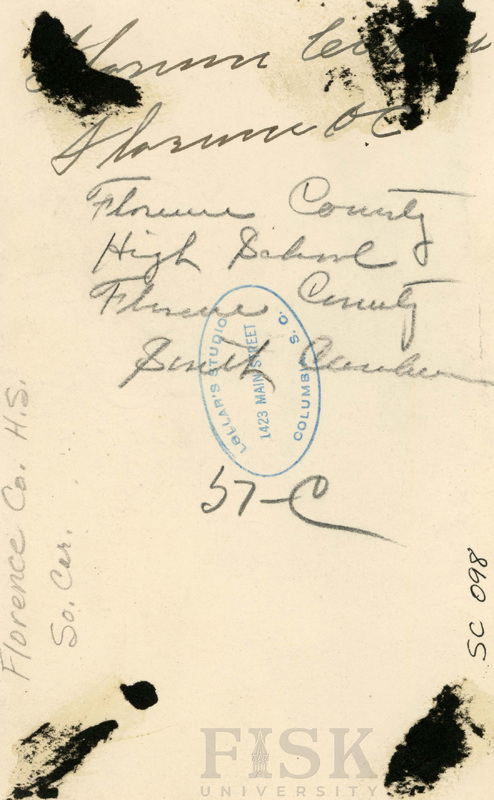 Florence
Florence SC
Florence County
High School
Florence County
South Carolina
LOLLAR'S STUDIO
1423 MAIN STREET
COLUMBIA S. C.
57-C
Florence Co. H.S.
So. Car.
SC 098
FISK
UNIVERSITY